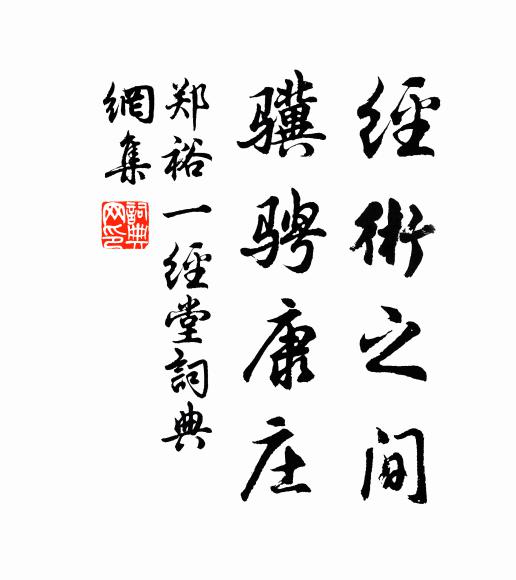 經術之间
骥骋康庄
郑裕一經堂詞典
網集
詞典
网印